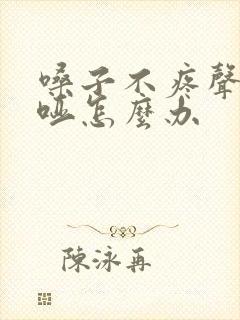 嗓子不疼聲
啞怎麼办
陳泳再